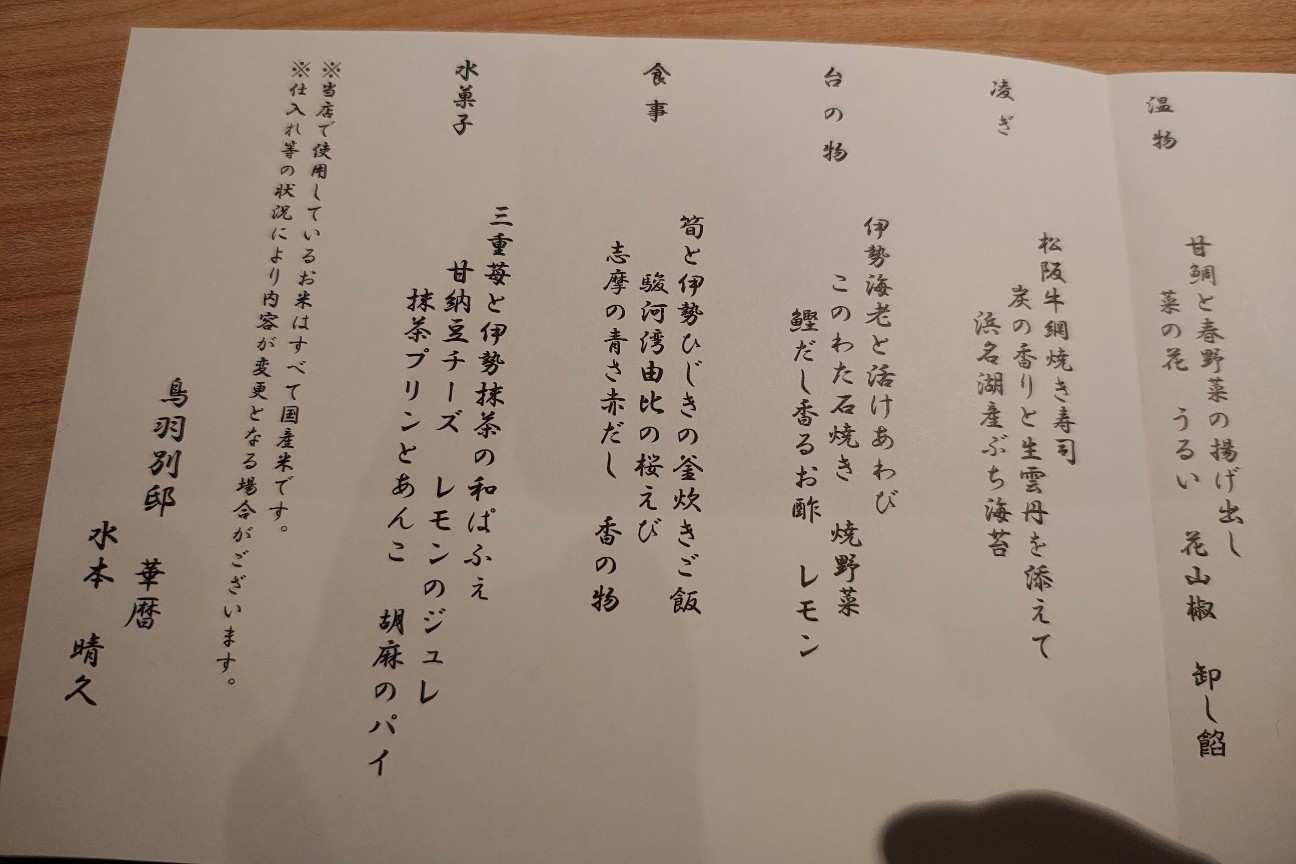 温物
甘鯛と春野菜の揚げ出し
菜の花　うるい　花山椒　卸し餡
凌ぎ
松阪牛網焼き寿司
炭の香りと生雲丹を添えて
浜名湖産ぶち海苔
台の物
伊勢海老と活けあわび
このわた石焼き　焼野菜
鰹だし香るお酢　レモン
食事
筍と伊勢ひじきの釜炊きご飯
駿河湾由比の桜えび
志摩の青さ赤だし　香の物
水菓子
三重苺と伊勢抹茶の和ぱふぇ
甘納豆チーズ　レモンのジュレ
抹茶プリンとあんこ　胡麻のパイ
※当店で使用しているお米はすべて国産米です。
※仕入れ等の状況により内容が変更となる場合がございます。
鳥羽別邸　華暦
水本　晴久